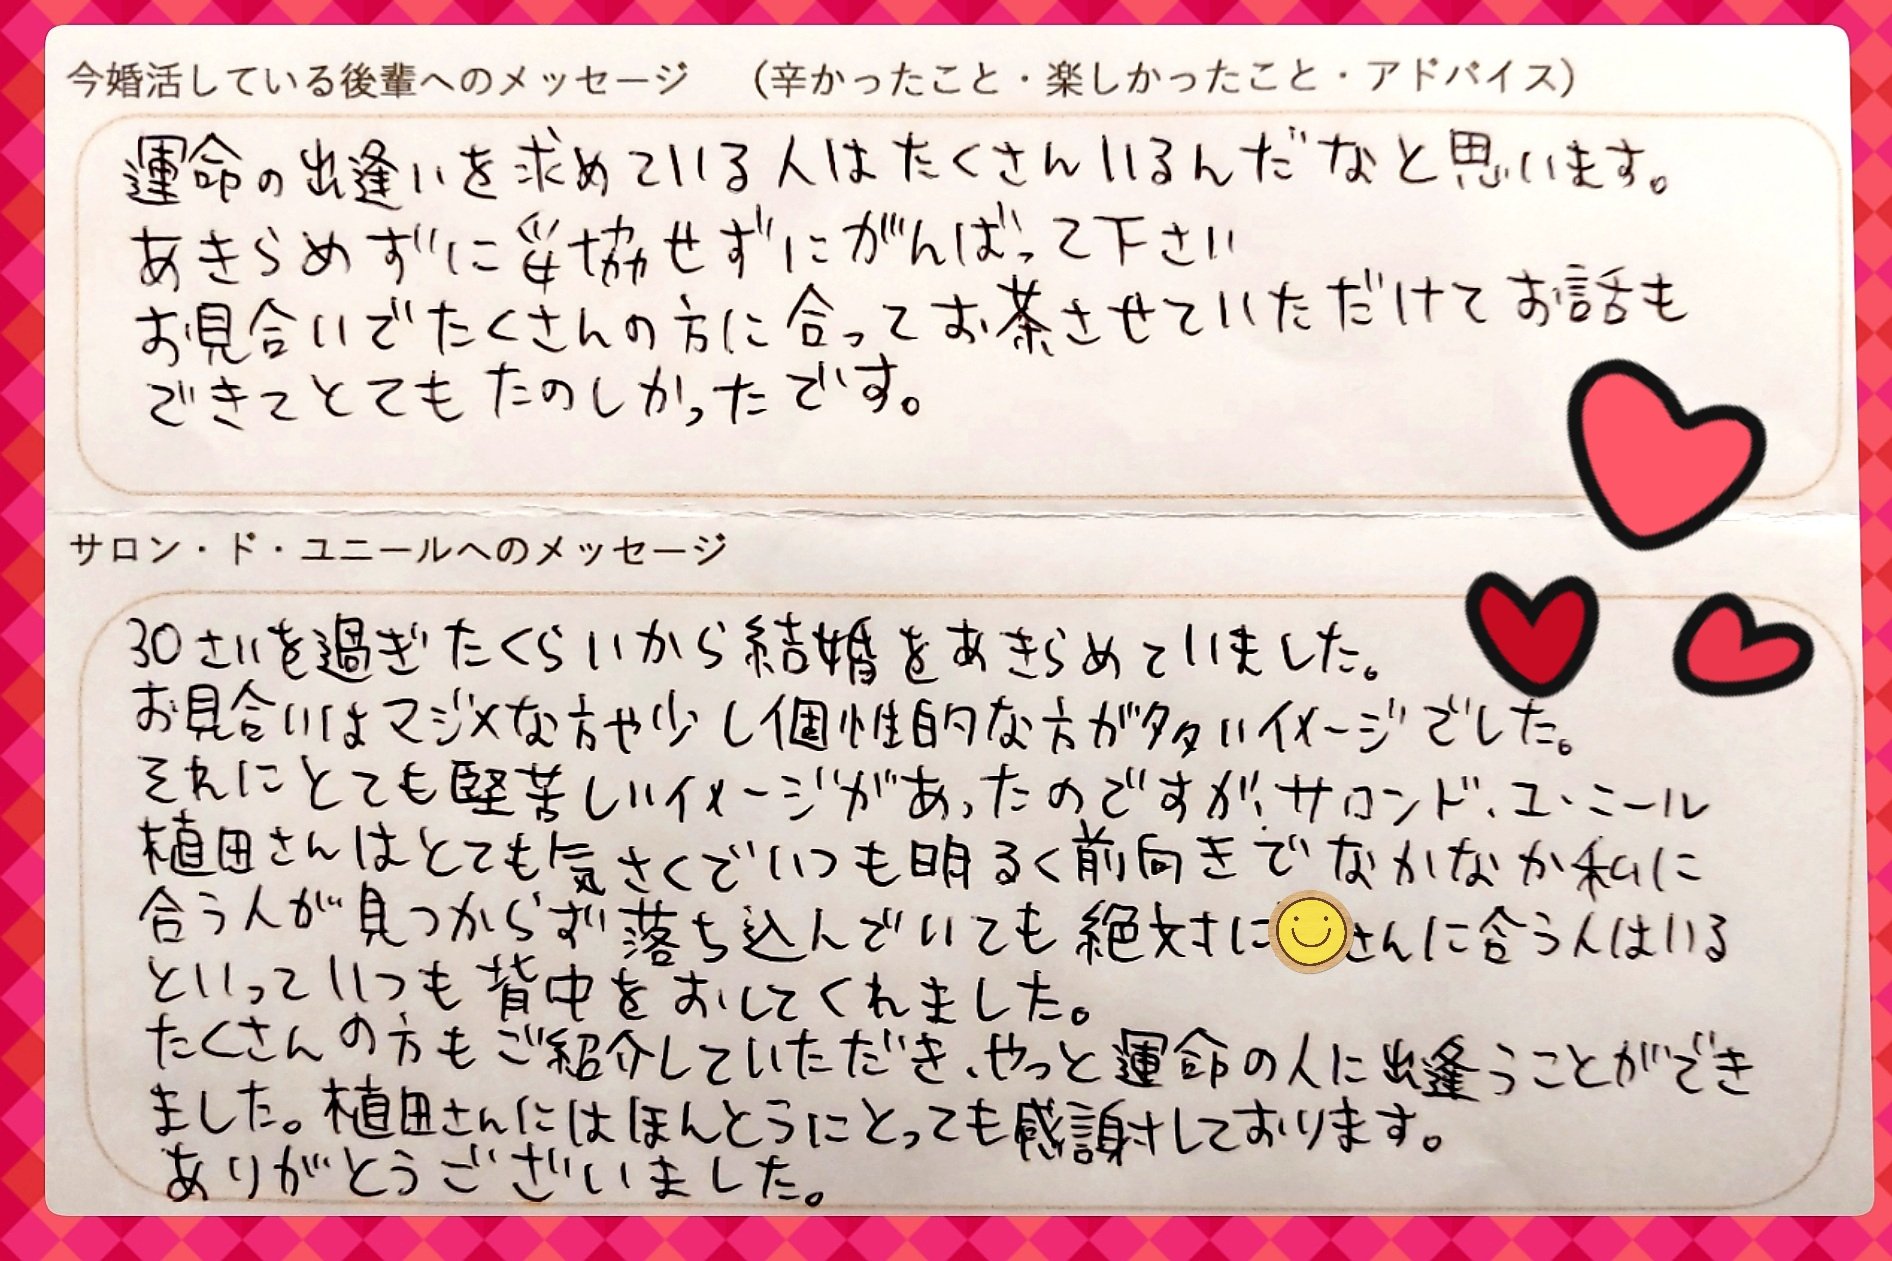 今婚活している後輩へのメッセージ　(辛かったこと・楽しかったこと・アドバイス)
運命の出逢いを求めている人はたくさんいるんだなと思います。
あきらめずに妥協せずにがんばって下さい
お見合いでたくさんの方に合ってお茶させていただけてお話も
できてとてもたのしかったです。
サロン・ド・ユニールへのメッセージ
30さいを過ぎたくらいから結婚をあきらめていました。
お見合いはマジメな方や少し個性的な方が多いイメージでした。
それにとても堅苦しいイメージがあったのですが、サロンド、ユ・ニール
植田さんはとても気さくでいつも明るく前向きでなかなか私に
合う人が見つからず落ち込んでいても絶対に さんに合う人はいる
といっていつも背中をおしてくれました。
たくさんの方もご紹介していただき、やっと運命の人に出逢うことができ
ました。植田さんにはほんとうにとっても感謝しております。
ありがとうございました。